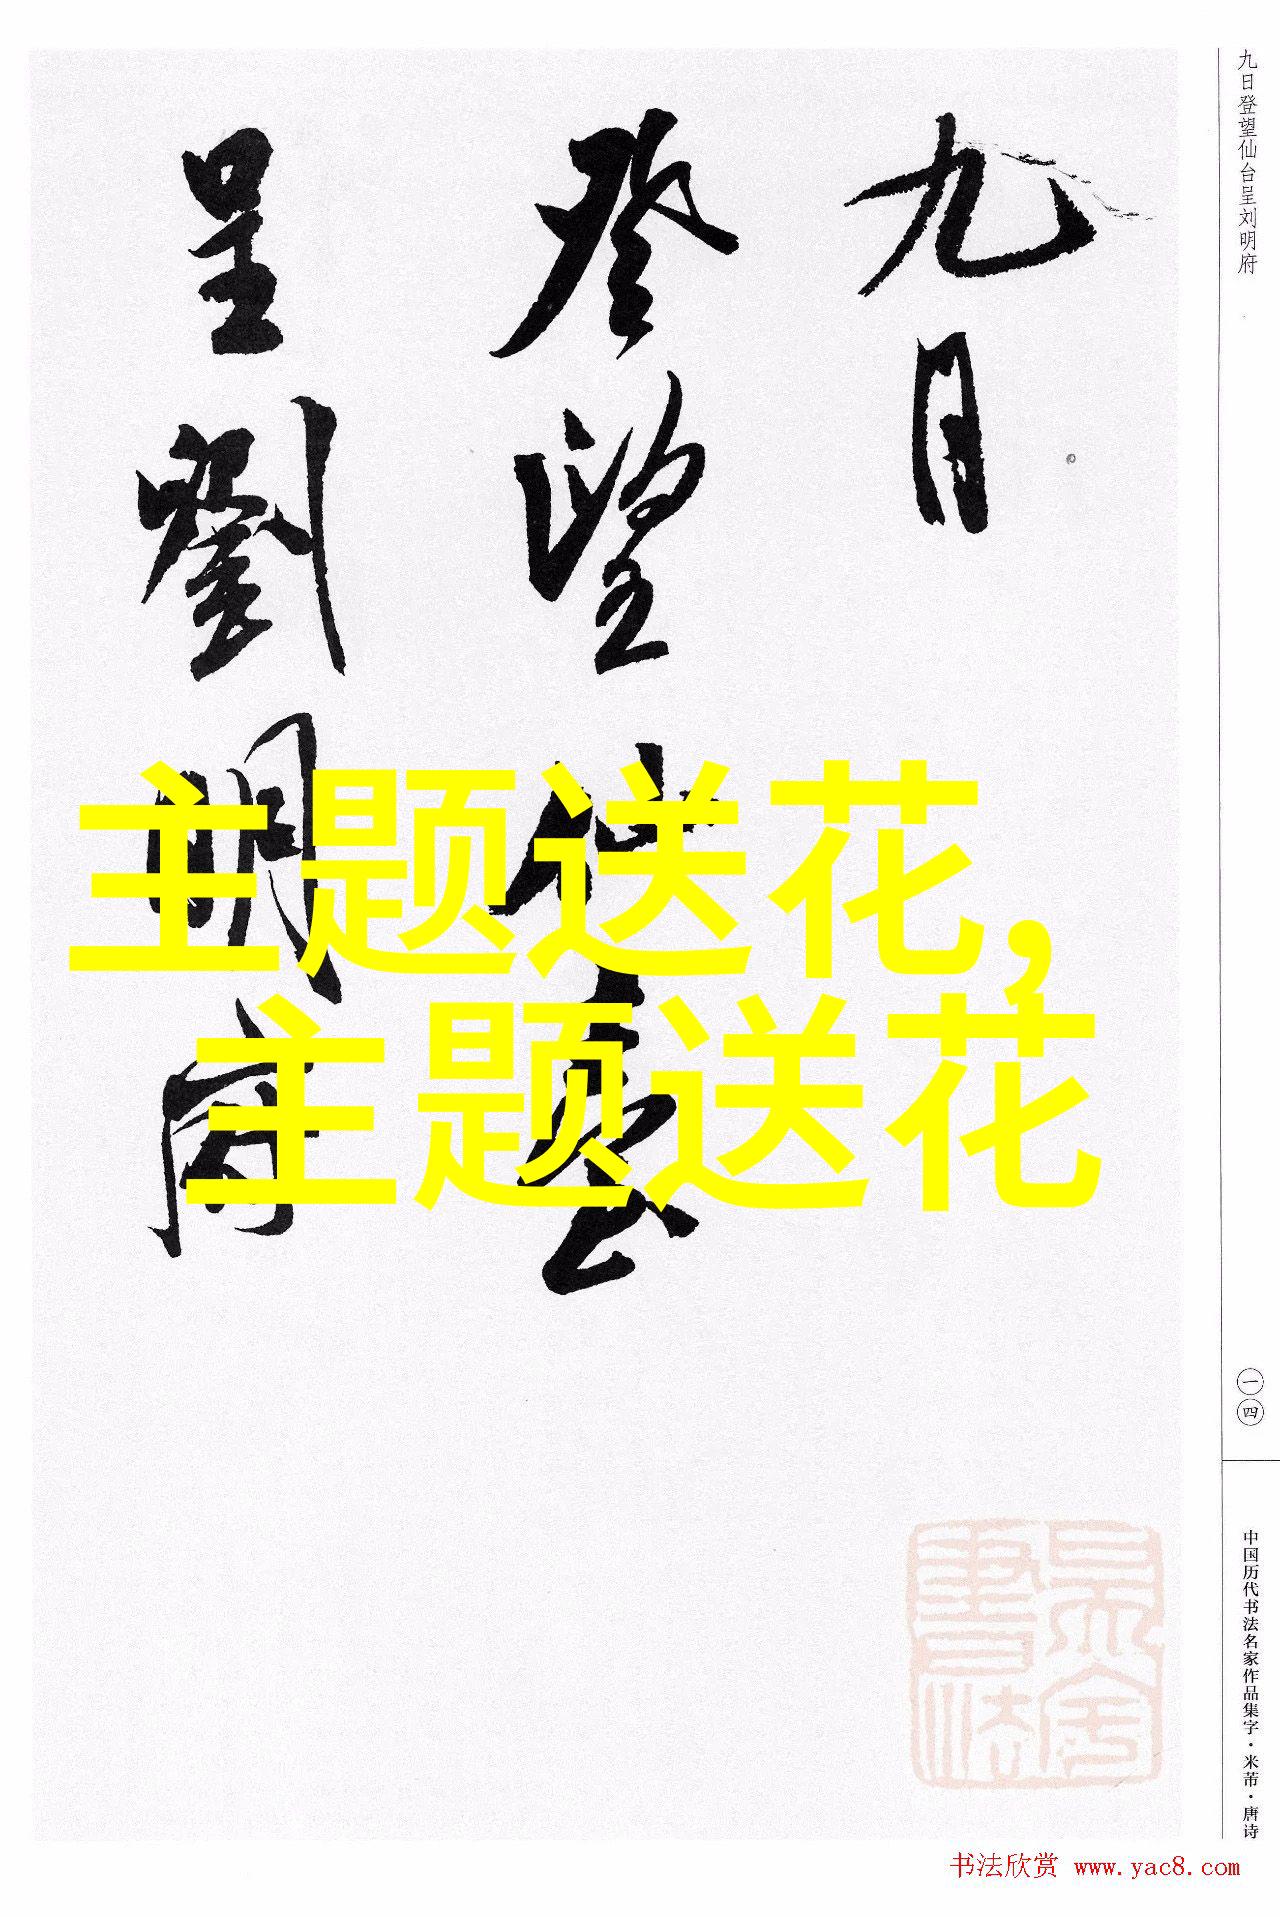 九日
登望仙臺
呈劉明府
主题送花,
主题送花
九日登望仙台呈刘明府
一四
中国历代书法名家作品集字·米芾·唐诗
书法欣赏 www.yac8.com